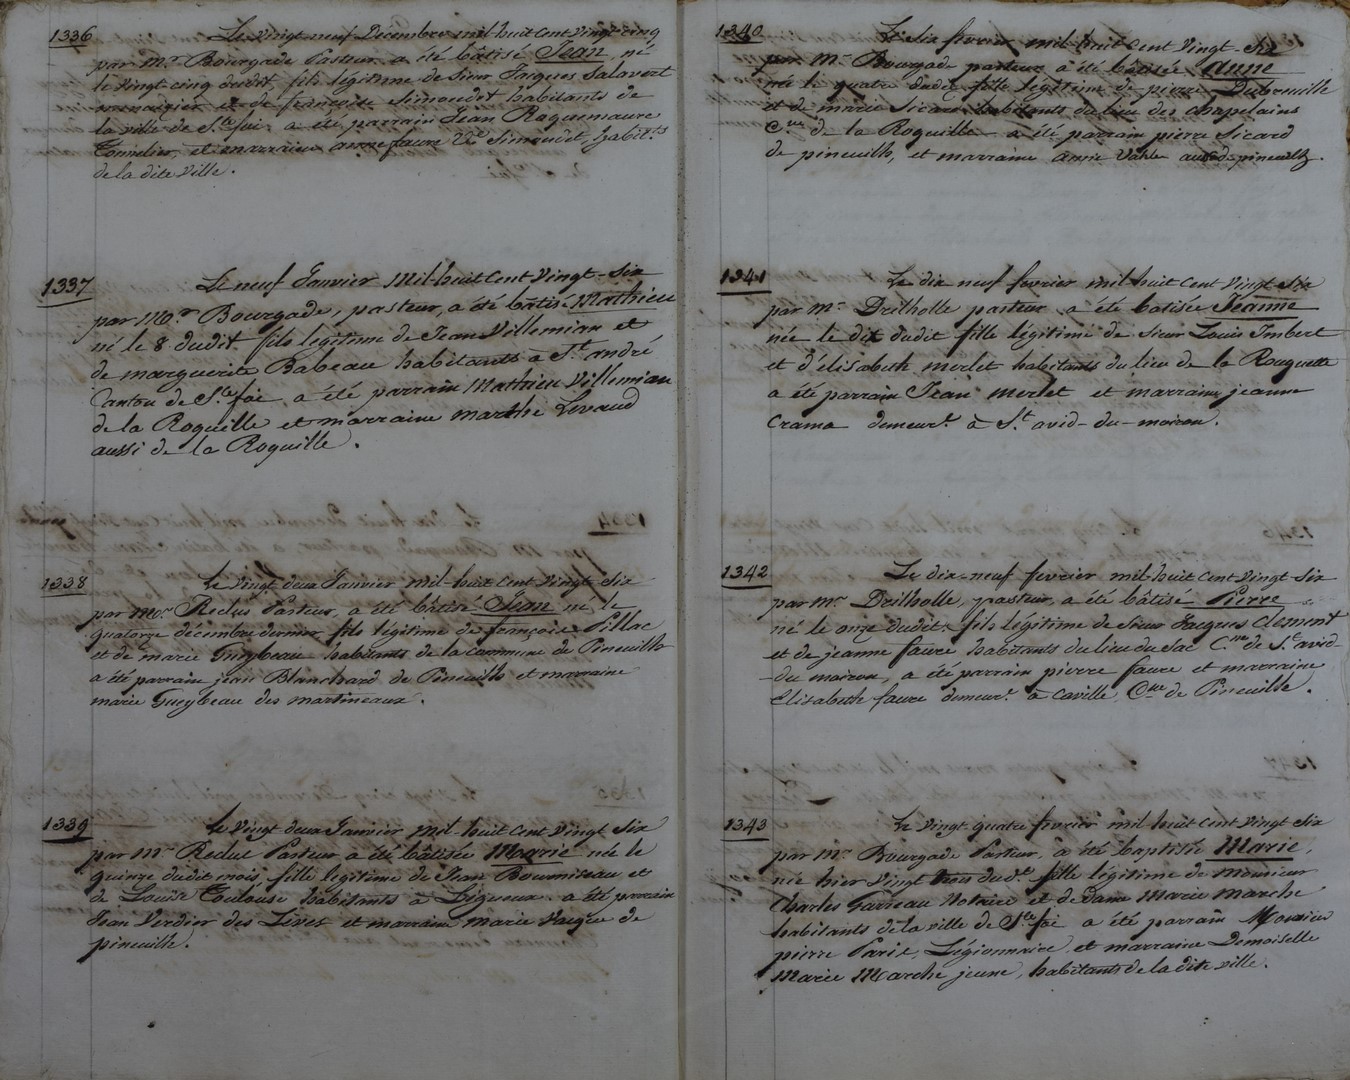 1336
Le vingt neuf Décembre mil huit Cent vingt cinq
par Mr. Bourgade Pasteur, a été bâtisé Jean, né
le vingt cinq dudit, fils légitime de Sieur Jacques Salavert
et de françoise Simondet habitants de
la ville de Ste. foi a été parrain Jean Raquemaure
Tonnelier, et marraine anne faure Ve. Simondet, habit.ts
de la dite ville.
1337
Le neuf Janvier Mil-huit Cent Vingt-Six
par Mo.r Bourgade, pasteur, a été bâtisé Mathieu
né le 8 dudit fils légitime de Jean Villemian et
de marguerite Babeau habitants à St. andré
Canton de Ste. foi, a été parrain Mathieu Villemian
de la Roquille et marraine marthe Levaud
aussi de la Roquille.
1338
Le vingt deux Janvier mil-huit Cent Vingt-Six
par mo.r Reclus Pasteur, a été bâtisé Jean né le
quatorze décembre dernier fils légitime de françois Pillac
et de marie Gueybeau habitants de la Commune de Pineuilh
a été parrain jean Blanchard de Pineuilh et marraine
marie Gueybeau des martineaux.
1339
Le Vingt deux Janvier mil-huit Cent vingt Six
par Mr. Reclus Pasteur, a été bâtisée Marie née le
quinze dudit mois, fille légitime de Jean Bourniseau et
de Louise Toulouse habitants à Ligueux. a été parrain
Jean Verdier des Leves et marraine marie de
pineuilh.
1340
Le Six fevrier mil-huit Cent Vingt-Six
par Mr. Bourgade pasteur a été bâtisée anne
née le quatre dudit fille légitime de pierre Dubreuille
et de marie Sicard habitants du lieu des Chapelains
C.ne de la Roquille a été parrain pierre Sicard
de pineuilh, et marraine anne aussi de pineuilh.
1341
Le dix neuf fevrier mil huit Cent Vingt Six
par mr. Dreilholle pasteur a été batisée Jeanne
née le dix dudit fille légitime de Sieur Louis Imbert
et d'élisabeth merlet habitants du lieu de la Rouquette
a été parrain Jean merlet et marraine jeanne
Crama demeur.t à St. avid-du-moiron.
1342
Le dix-neuf fevrier mil huit Cent Vingt Six
par mr. Dreilholle, pasteur, a été bâtisé Pierre
né le onze dudit. fils légitime de Sieur Jacques Clement
et de jeanne faure habitants du lieu du Sac C.ne de St. avid-
-du moiron, a été parrain pierre faure et marraine
Elisabeth faure demeur.t à Caville, C.ne de Pineuilh.
1343
Le vingt-quatre fevrier mil huit Cent Vingt Six
par mr. Bourgade Pasteur, a été baptisée Marie,
née hier vingt trois dud.t fille légitime de Monsieur
Charles Garreau Notaire et de Dame Marie Marche
habitants de la ville de Ste. foi a été parrain Monsieur
pierre Paris, Légionnaire, et marraine Demoiselle
Marie Marche jeune, habitants de la dite ville.